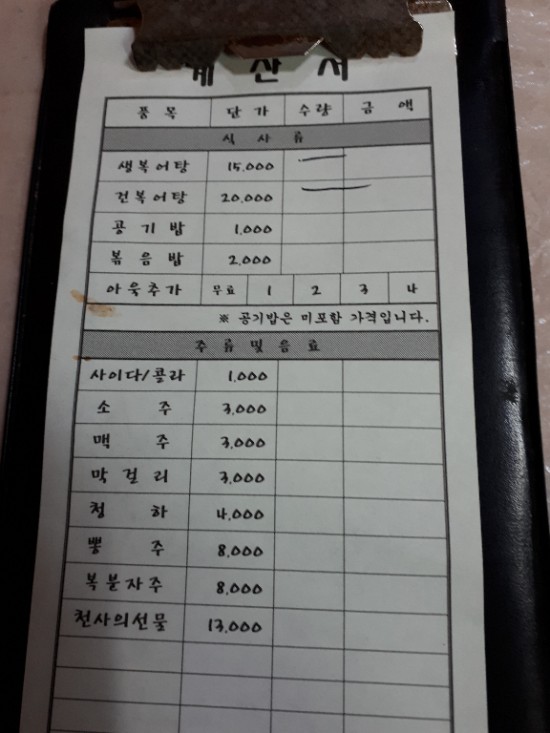 계 산 서
품 목 단 가 수 량 금 액
식 사 류
생복어탕 15,000
건복어탕 20,000
공 기 밥 1,000
볶 음 밥 2,000
아욱추가 무료 1 2 3 4
※ 공기밥은 미포함 가격입니다.
주 류 및 음 료
사이다/콜라 1,000
소 주 3,000
맥 주 3,000
막 걸 리 3,000
청 하 4,000
뽕 주 8,000
복분자주 8,000
천사의선물 13,000